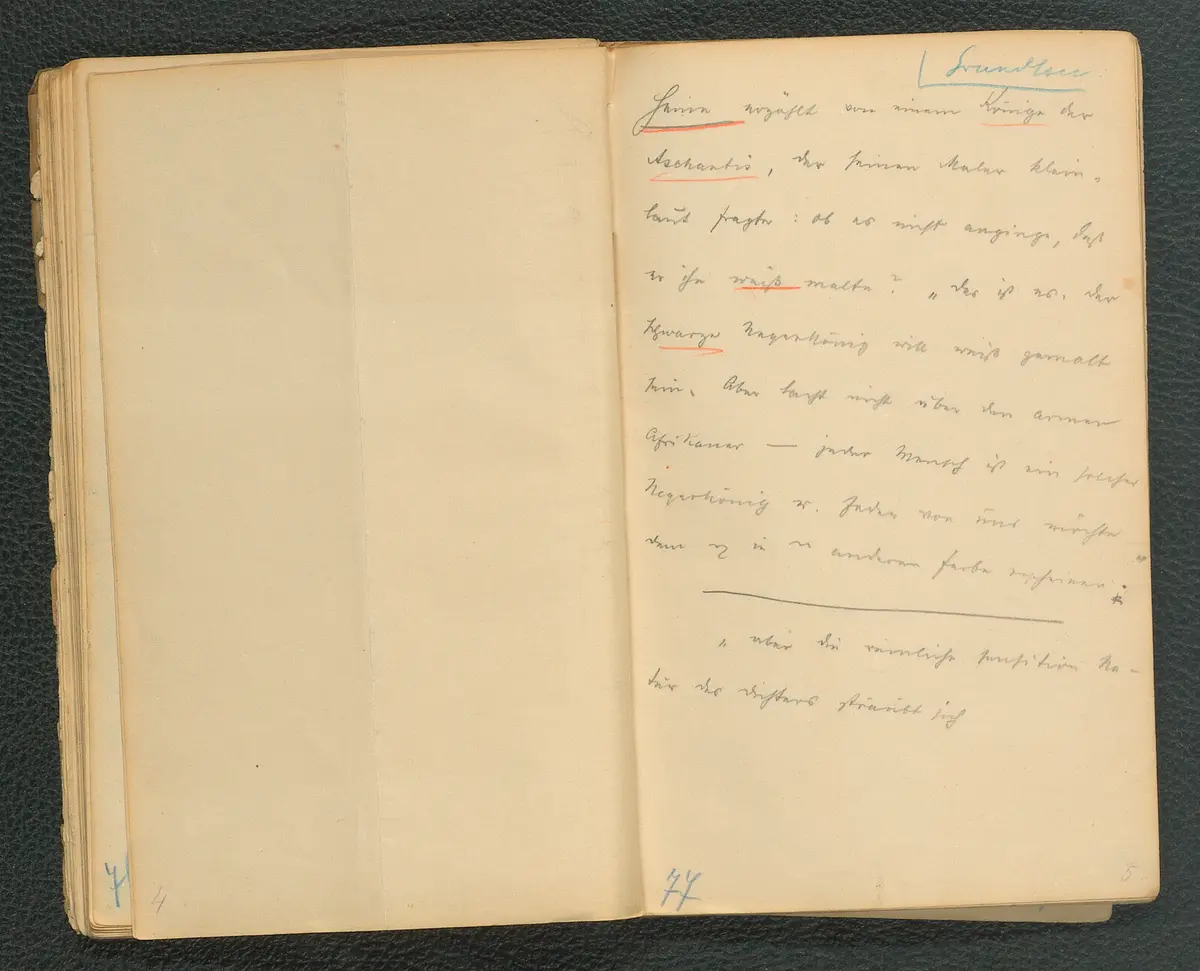 Grundlsee
Heine erzählt von einem Könige der
Aschantis, der seinen Maler klein-
laut fragte: ob es nicht anginge, daß
er ihn weiß malte? „das ist es. der
schwarze Negerkönig will weiß gemalt
sein. Aber lacht nicht über den armen
Afrikaner — jeder Mensch ist ein solcher
Negerkönig u. Jeder von uns möchte
dem in anderen Farbe erscheinen
„aber die reinliche sensitive Na-
tur des Dichters sträubt sich
4
77
5